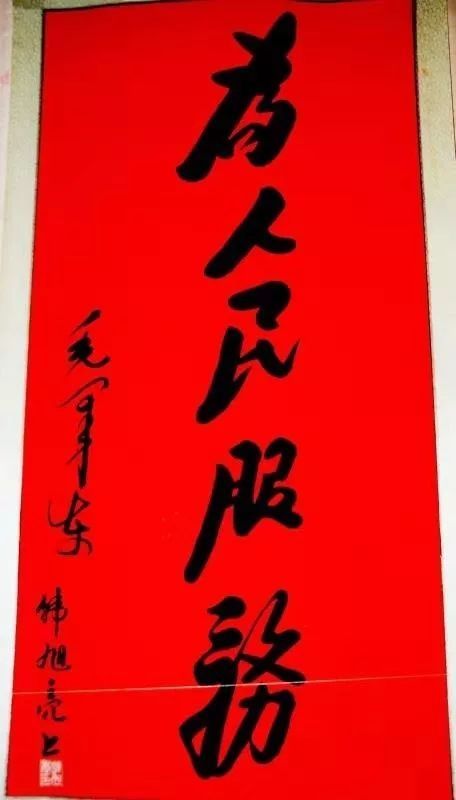 為人民服務
毛泽东
韩旭亮上